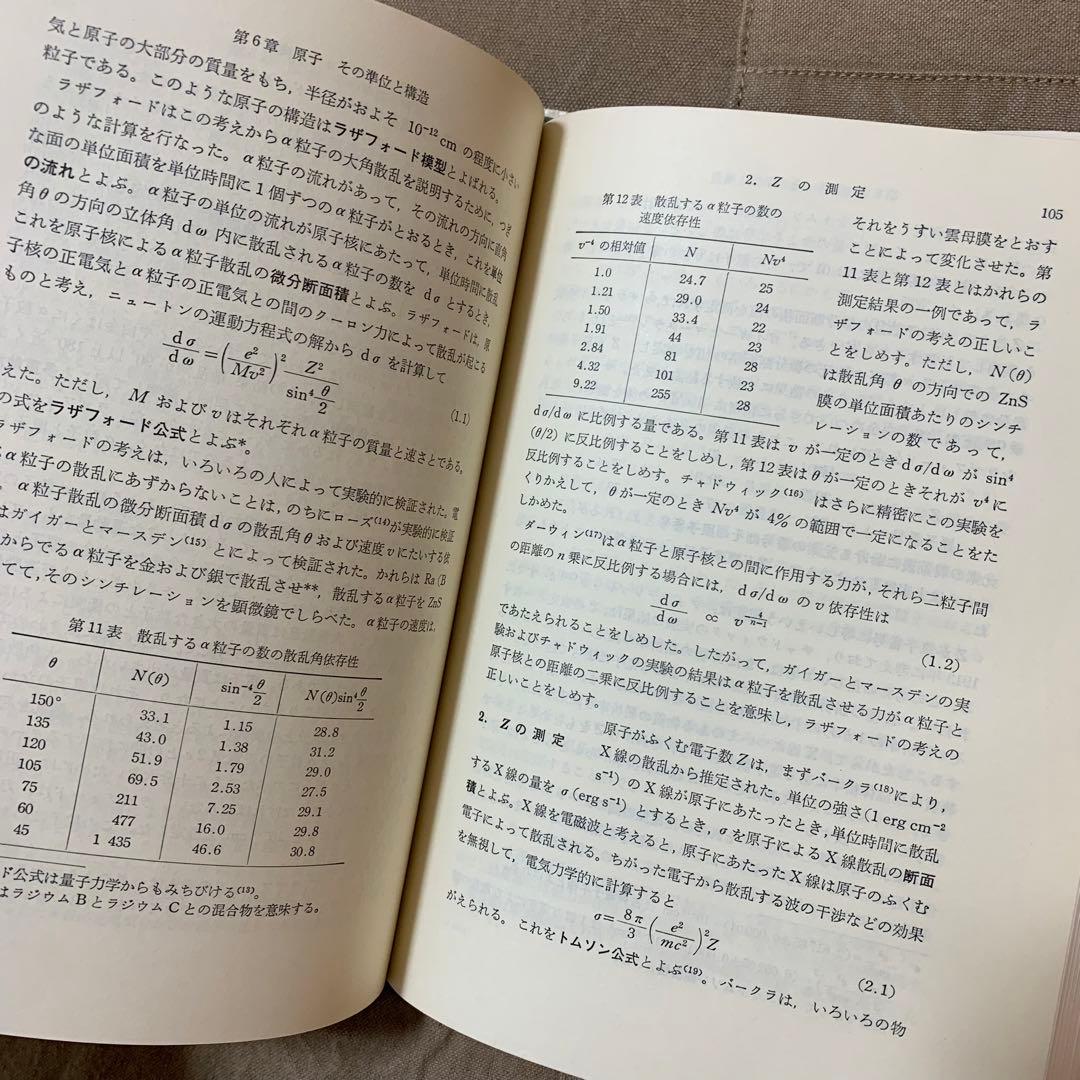 第6章 原子 その準位と構造
気と原子の大部分の質量をもち，半径がおよそ 10⁻¹² cm の程度に小さい
粒子である。このような原子の構造はラザフォード模型とよばれる。
ラザフォードはこの考えからα粒子の大角散乱を説明するために，つぎ
のような計算を行なった。α粒子の流れがあって，その流れの方向に直角
な面の単位面積を単位時間に1個ずつのα粒子がとおるとき，これを単位
の流れとよぶ。α粒子の単位の流れが原子核にあたって，単位時間に散乱
角θの方向の立体角 dω 内に散乱されるα粒子の数を dσ とするとき，
これを原子核によるα粒子散乱の微分断面積とよぶ。ラザフォードは，原
子核の正電気とα粒子の正電気との間のクーロン力によって散乱が起こる
ものと考え，ニュートンの運動方程式の解から dσ を計算して
dσ/dω = (e²/Mv²)² Z²/sin⁴ θ/2 (1.1)
えた。ただし，M および v はそれぞれα粒子の質量と速さとである。
の式をラザフォード公式とよぶ*。
ラザフォードの考えは，いろいろの人によって実験的に検証された。電
α粒子の散乱にあずからないことは，のちにローズ⁽¹⁴⁾が実験的に検証
α粒子散乱の微分断面積 dσ の散乱角θおよび速度 v にたいする依
はガイガーとマースデン⁽¹⁵⁾とによって検証された。かれらは Ra (B
からでるα粒子を金および銀で散乱させ**，散乱するα粒子を ZnS
てて，そのシンチレーションを顕微鏡でしらべた。α粒子の速度は，
第11表 散乱するα粒子の数の散乱角依存性
θ N(θ) sin⁻⁴ θ/2 N(θ)sin⁴ θ/2
150° 33.1 1.15 28.8
135 43.0 1.38 31.2
120 51.9 1.79 29.0
105 69.5 2.53 27.5
75 211 7.25 29.1
60 477 16.0 29.8
45 1 435 46.6 30.8
ド公式は量子力学からもみちびける⁽¹³⁾。
はラジウムBとラジウムCとの混合物を意味する。
2. Z の 測 定
105
第12表 散乱するα粒子の数の
速度依存性
v⁻⁴ の相対値 N Nv⁴
1.0 24.7 25
1.21 29.0 24
1.50 33.4 22
1.91 44 23
2.84 81 28
4.32 101 23
9.22 255 28
それをうすい雲母膜をとおす
ことによって変化させた。第
11表と第12表とはかれらの
測定結果の一例であって，ラ
ザフォードの考えの正しいこ
とをしめす。ただし，N(θ)
は散乱角 θ の方向での ZnS
膜の単位面積あたりのシンチ
レーションの数であって，
dσ/dω に比例する量である。第11表は v が一定のとき dσ/dω が sin⁴
(θ/2) に反比例することをしめし，第12表はθが一定のときそれが v⁴ に
反比例することをしめす。チャドウィック⁽¹⁶⁾はさらに精密にこの実験を
くりかえして，θが一定のとき Nv⁴ が 4% の範囲で一定になることをた
しかめた。
ダーウィン⁽¹⁷⁾はα粒子と原子核との間に作用する力が，それら二粒子間
の距離の n 乗に反比例する場合には，dσ/dω の v 依存性は
dσ/dω ∝ v^(-4/(n-1)) (1.2)
であたえられることをしめした。したがって，ガイガーとマースデンの実
験およびチャドウィックの実験の結果はα粒子を散乱させる力がα粒子と
原子核との距離の二乗に反比例することを意味し，ラザフォードの考えの
正しいことをしめす。
2. Z の 測 定 原子がふくむ電子数 Z は，まずバークラ⁽¹⁸⁾により，
X線の散乱から推定された。単位の強さ (1 erg cm⁻²
s⁻¹) のX線が原子にあたったとき，単位時間に散乱
するX線の量を σ (erg s⁻¹) とするとき，σ を原子によるX線散乱の断面
積とよぶ。X線を電磁波と考えると，原子にあたったX線は原子のふくむ
電子によって散乱される。ちがった電子から散乱する波の干渉などの効果
を無視して，電気力学的に計算すると
σ = 8π/3 (e²/mc²)² Z (2.1)
がえられる。これをトムソン公式とよぶ⁽¹⁹⁾。バークラは，いろいろの物